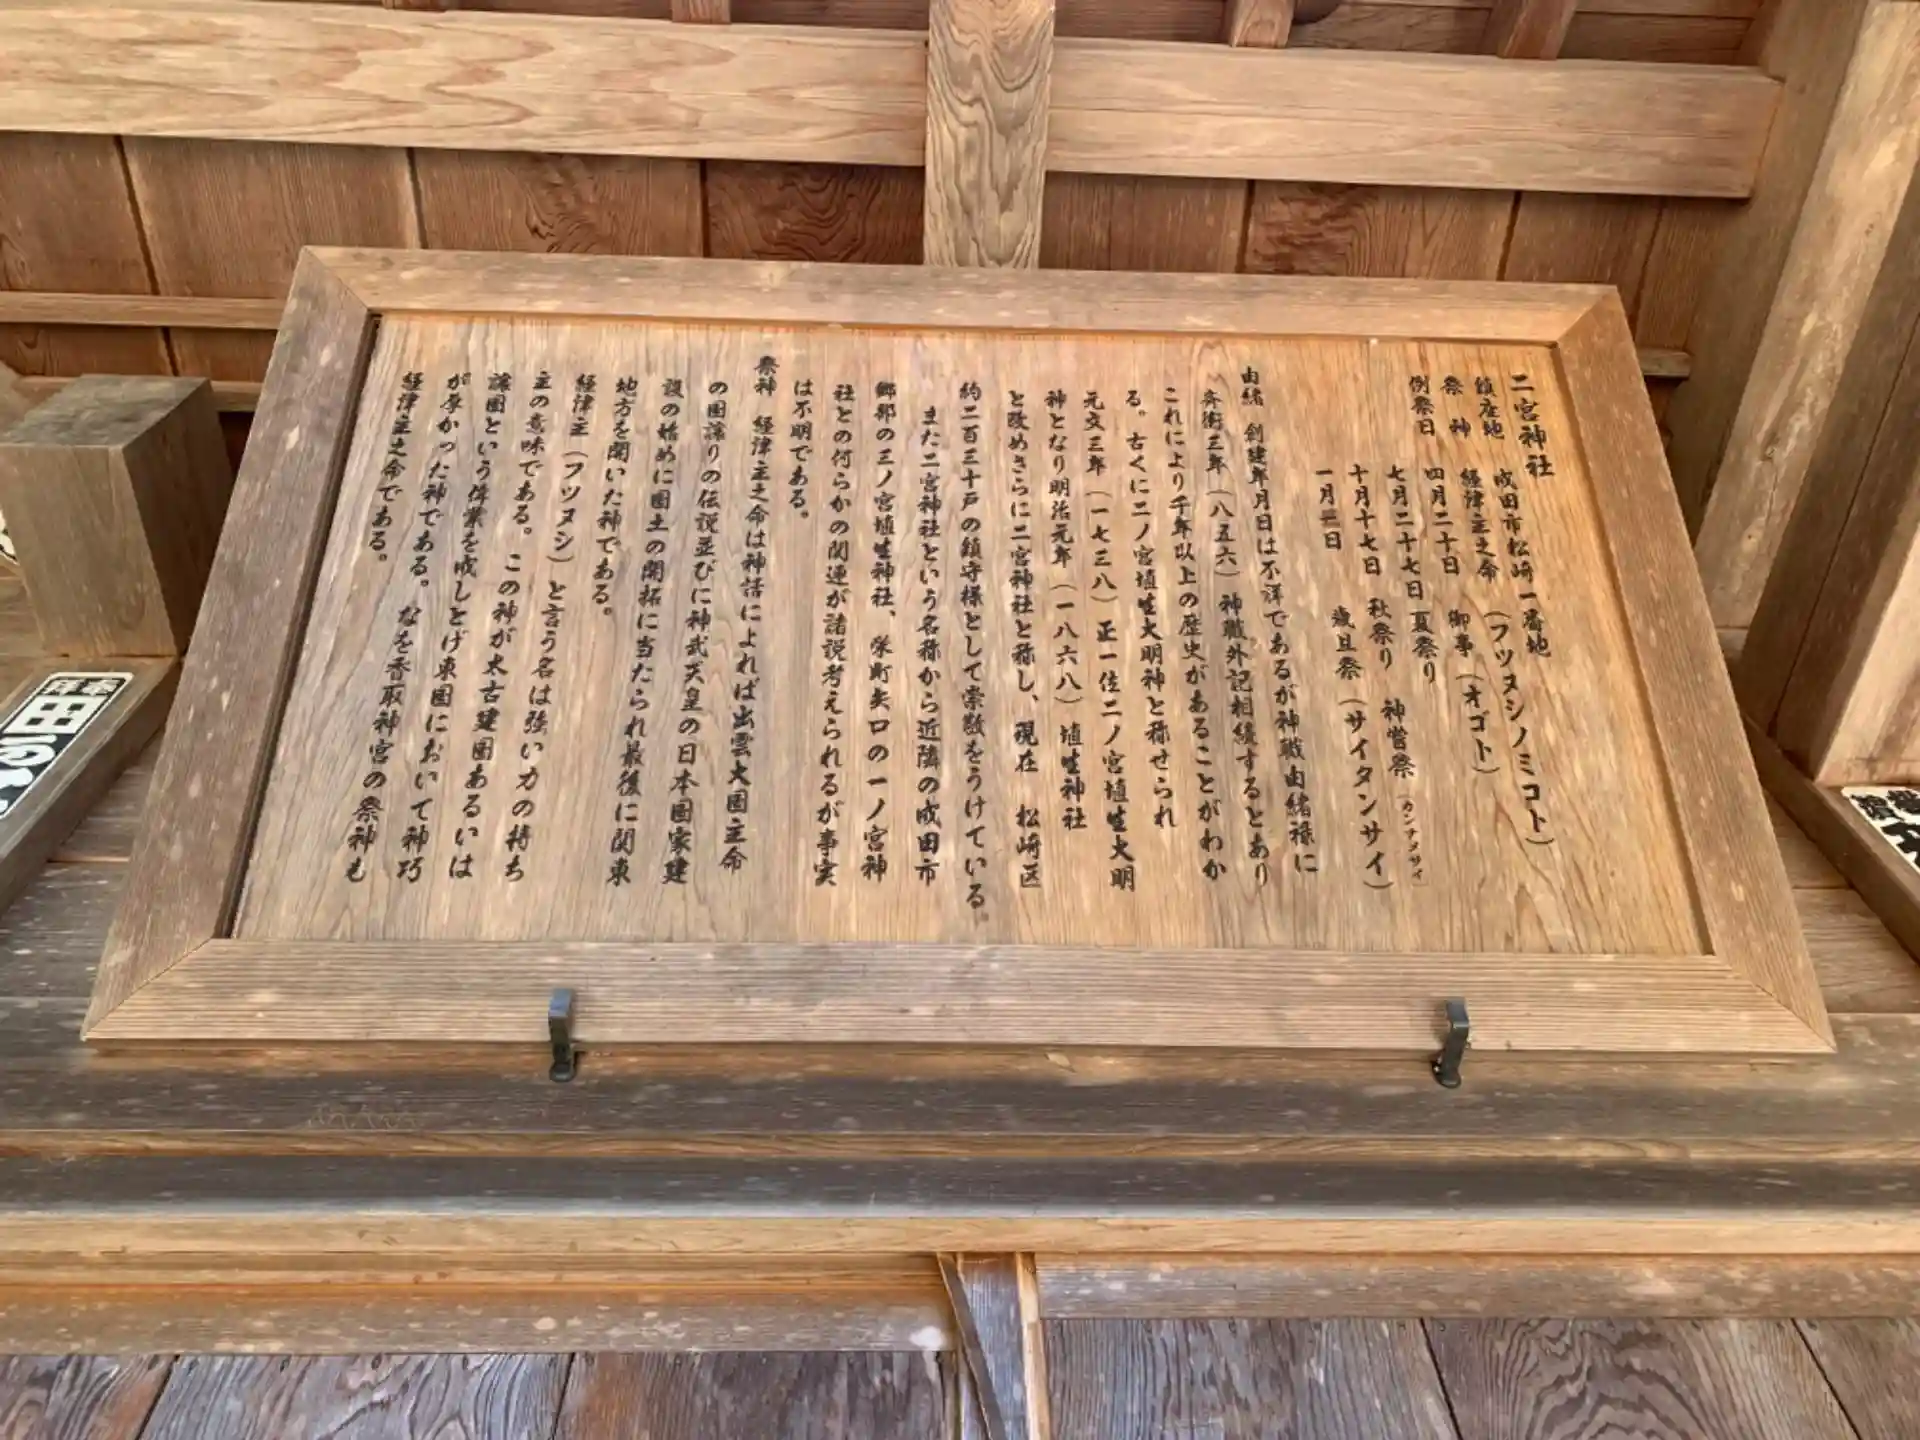 二宮神社
鎮座地 成田市松崎一番地
祭神 経津主之命 (フツヌシノミコト)
例祭日 四月二十日 御事 (オゴト)
七月二十七日 夏祭り
十月十七日 秋祭り 神嘗祭 (カンナメサイ)
一月 日 歳旦祭 (サイタンサイ)
由緒 創建年月日は不詳であるが神職由緒禄に
斉衡三年(八五六)神職外記相続するとあり
これにより千年以上の歴史があることがわか
る。古くに二ノ宮埴生大明神と称せられ
元文三年(一七三八)正一位二ノ宮埴生大明
神となり明治元年(一八六八)埴生神社
と改めさらに二宮神社と称し、現在 松崎区
約二百三十戸の鎮守様として崇敬をうけている
また二宮神社という名称から近隣の成田市
郷部の三ノ宮埴生神社、栄町矢口の一ノ宮神
社との何らかの関連が諸説考えられるが事実
は不明である。
祭神 経津主之命は神話によれば出雲大国主命
の国譲りの伝説並びに神武天皇の日本国家建
設の始めに国土の開拓に当たられ最後に関東
地方を開いた神である。
経津主(フツヌシ)と言う名は強い力の持ち
主の意味である。この神が太古建国あるいは
譲国という偉業を成しとげ東国において神巧
が厚かった神である。なを香取神宮の祭神も
経津主之命である。